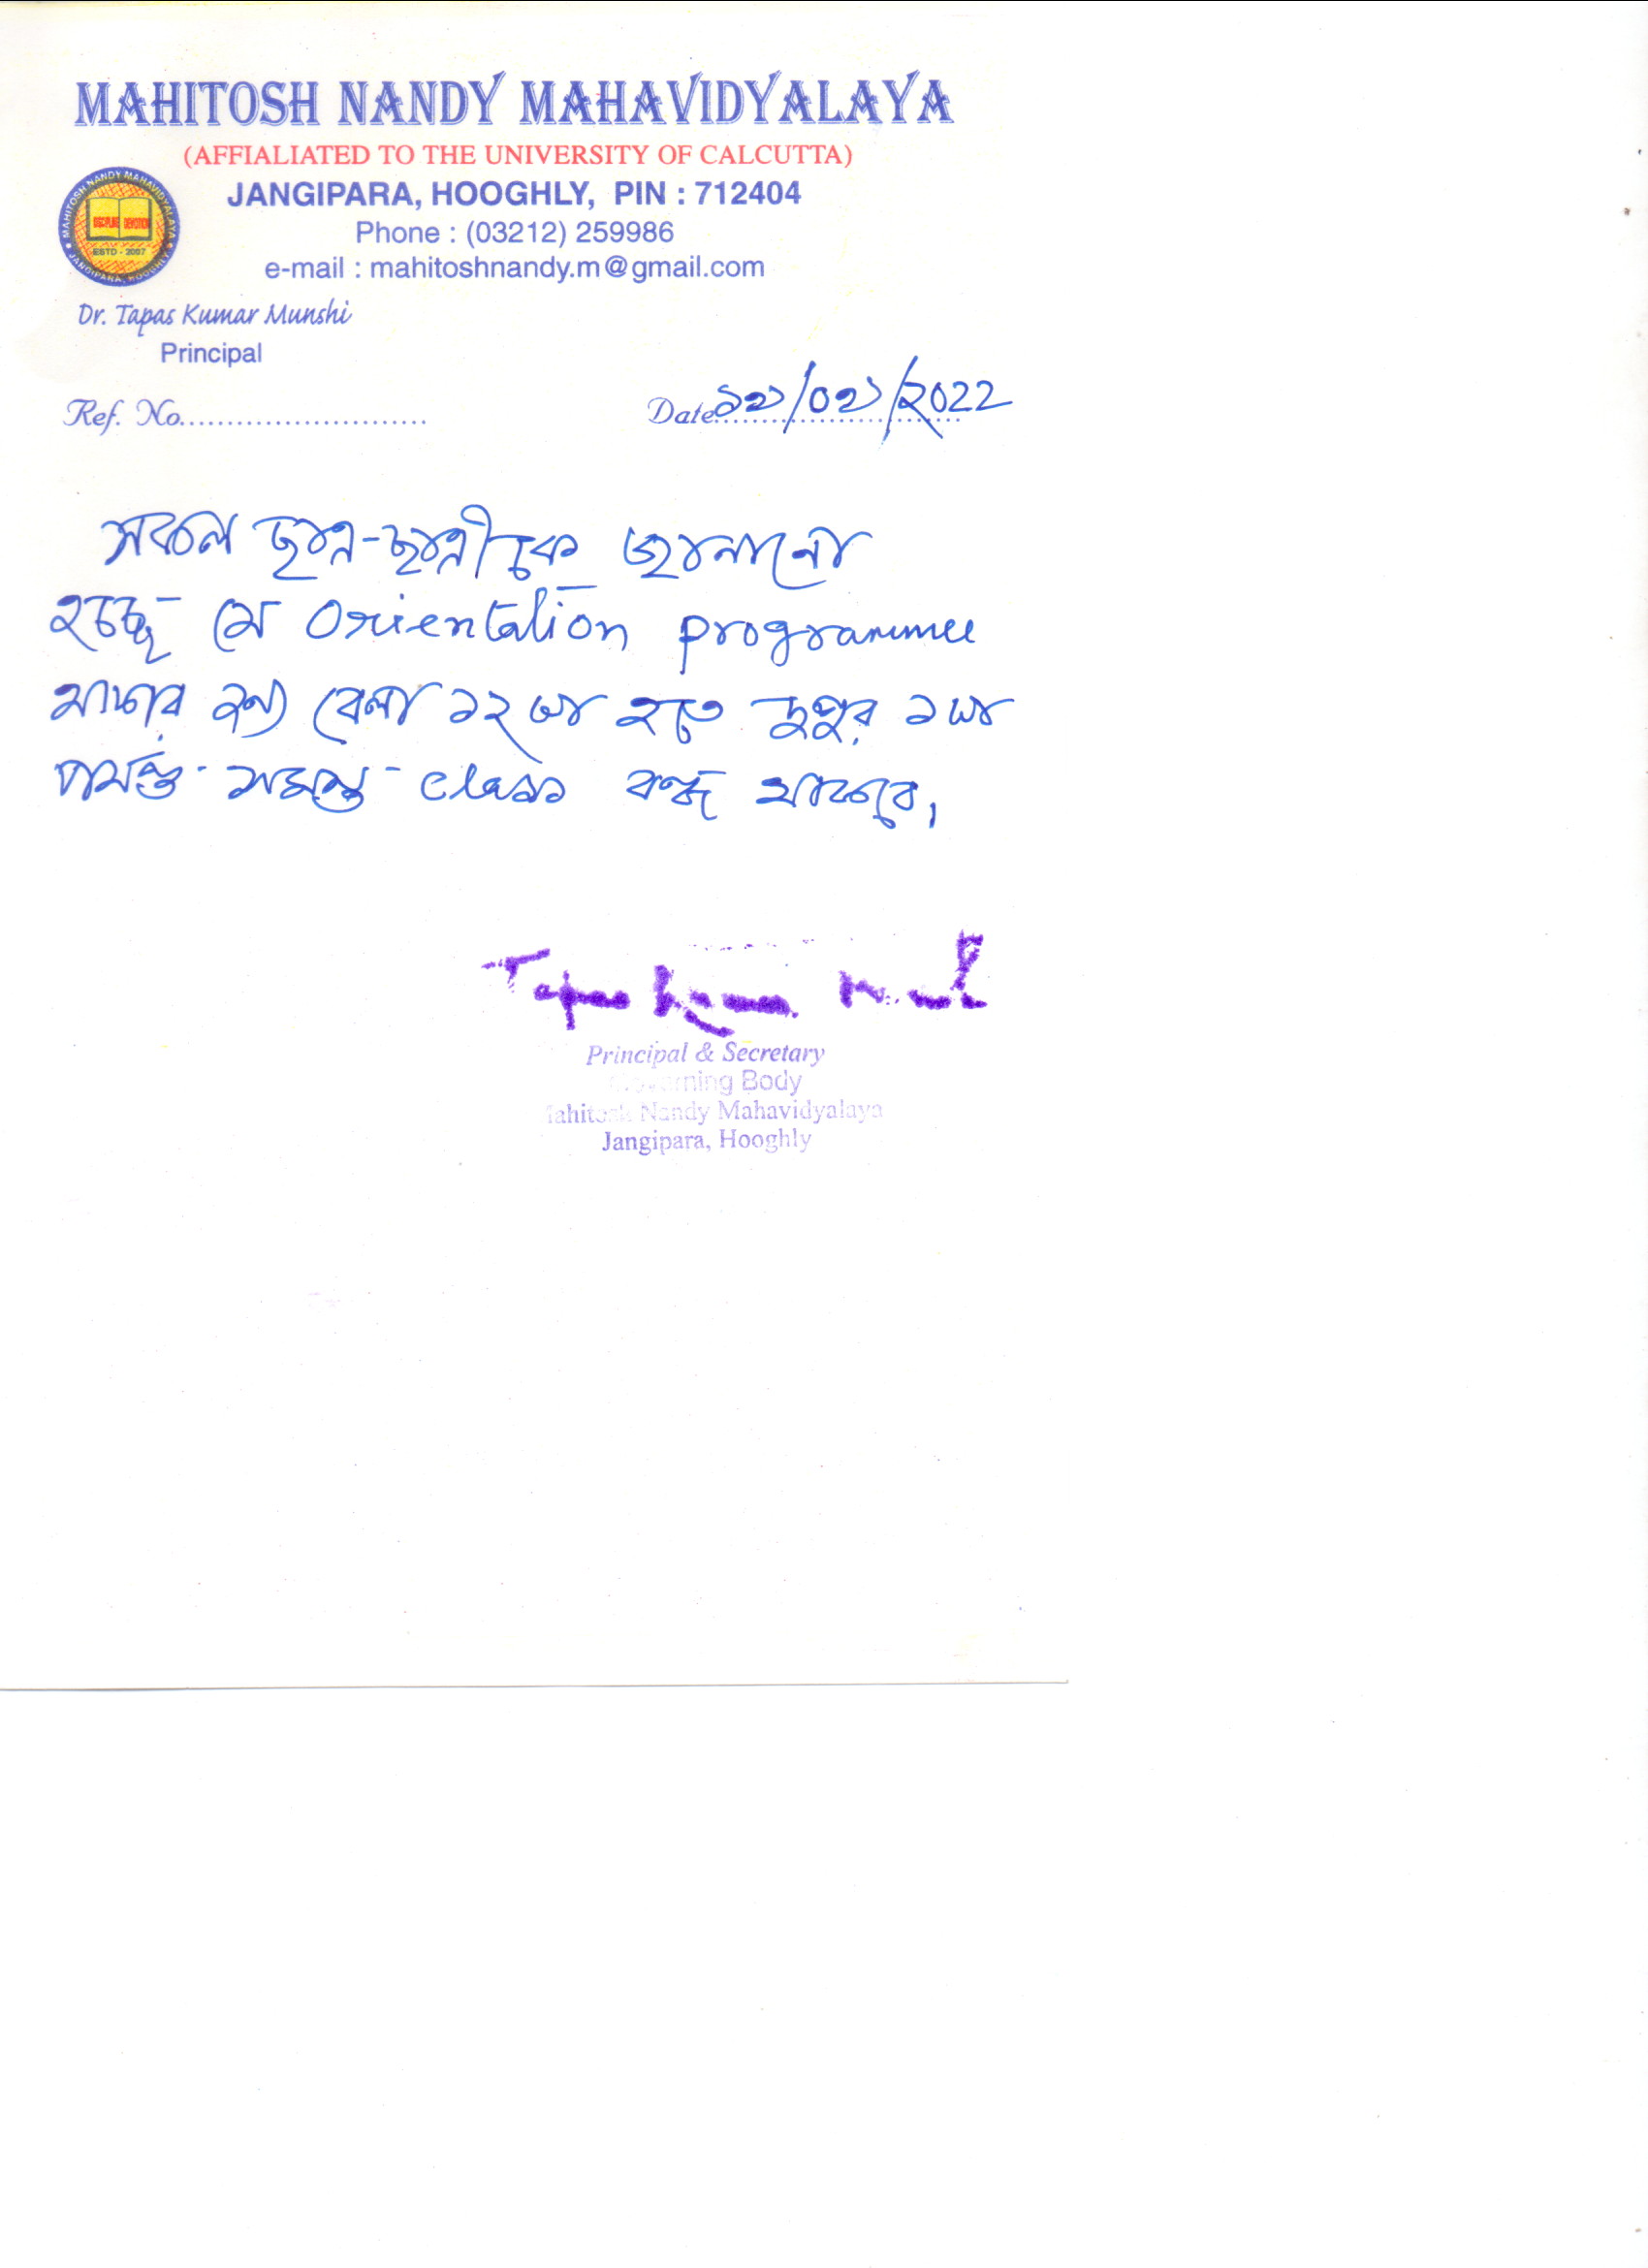 MAHITOSH NANDY MAHAVIDYALAYA
(AFFIALIATED TO THE UNIVERSITY OF CALCUTTA)
JANGIPARA, HOOGHLY, PIN : 712404
Phone : (03212) 259986
e-mail : mahitoshnandy.m@gmail.com
MAHITOSH NANDY MAHAVIDYALAYA
DISCIPLINE DEVOTION
ESTD - 2007
JANGIPARA, HOOGHLY
Dr. Tapas Kumar Munshi
Principal
Ref. No..........................
Date /0 /২022
সকল ছাত্র-ছাত্রীকে জানানো
হচ্ছে যে Orientation programme
থাকার জন্য বেলা ১২টা হতে দুপুর ১টা
পর্যন্ত সমস্ত class বন্ধ থাকবে।
Tapas Kumar
Principal & Secretary
Governing Body
Mahitosh Nandy Mahavidyalaya
Jangipara, Hooghly